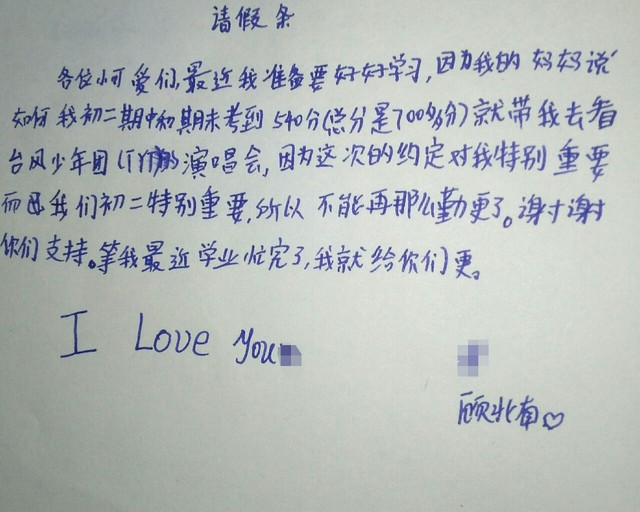 请假条
各位小可爱们,最近我准备要好好学习,因为我的妈妈说
如何我初二期中初期末考到540分(总分是700分)就带我去看
台风少年团(TYT)演唱会,因为这次的约定对我特别重要
而且我们初二特别重要,所以不能再那么勤更了。谢谢
你们支持。等我最近学业忙完了,我就给你们更。
I Love You
顾北南♡